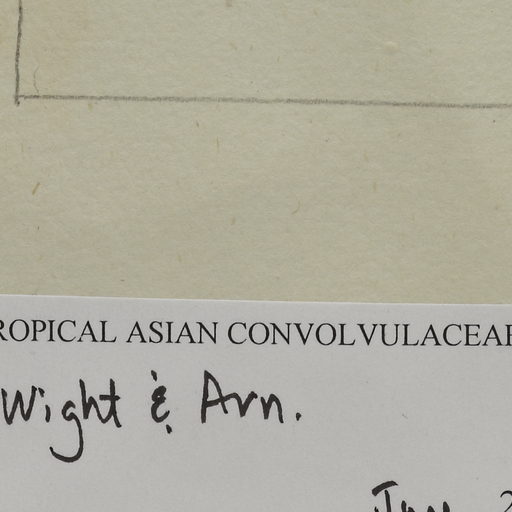 ROPICAL ASIAN CONVOLVULACEAE
Wight & Arn.